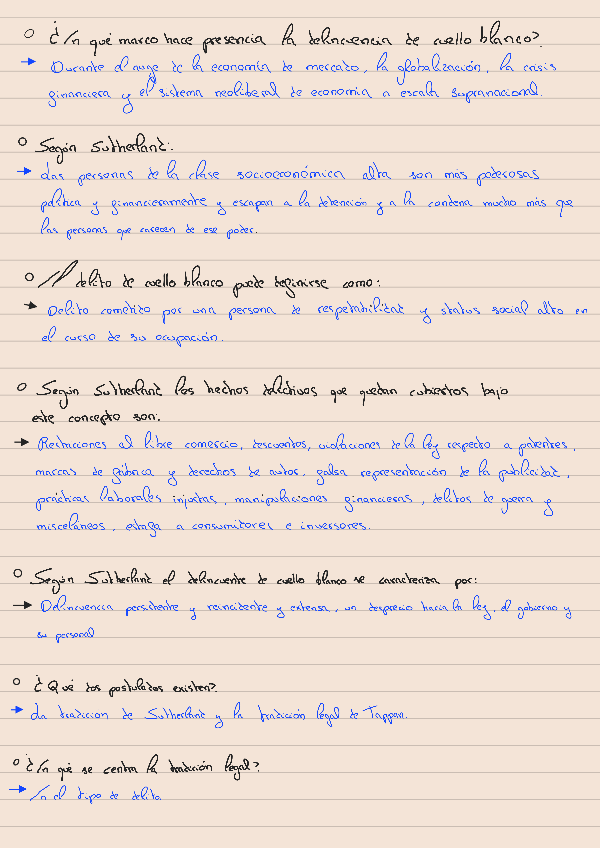 ○ ¿En qué marco hace presencia la delincuencia de cuello blanco?
→ Durante el auge de la economía de mercado, la globalización, la crisis
financiera y el sistema neoliberal de economía a escala supranacional.
○ Según Sutherland:
→ Las personas de la clase socioeconómica alta son más poderosas
política y financieramente y escapan a la detención y a la condena mucho más que
las personas que carecen de ese poder.
○ El delito de cuello blanco puede definirse como:
→ Delito cometido por una persona de respetabilidad y status social alto en
el curso de su ocupación.
○ Según Sutherland los hechos delictivos que quedan cubiertos bajo
este concepto son:
→ Restricciones al libre comercio, descuentos, violaciones de la ley respecto a patentes,
marcas de fábrica y derechos de autor, falsa representación de la publicidad,
prácticas laborales injustas, manipulaciones financieras, delitos de guerra y
misceláneos, estafa a consumidores e inversores.
○ Según Sutherland el delincuente de cuello blanco se caracteriza por:
→ Delincuencia persistente y reincidente y extensa, un desprecio hacia la ley, el gobierno y
su personal
○ ¿Qué dos postulados existen?
→ La tradición de Sutherland y la tradición legal de Tappan.
○ ¿En qué se centra la tradición legal?
→ En el tipo de delito